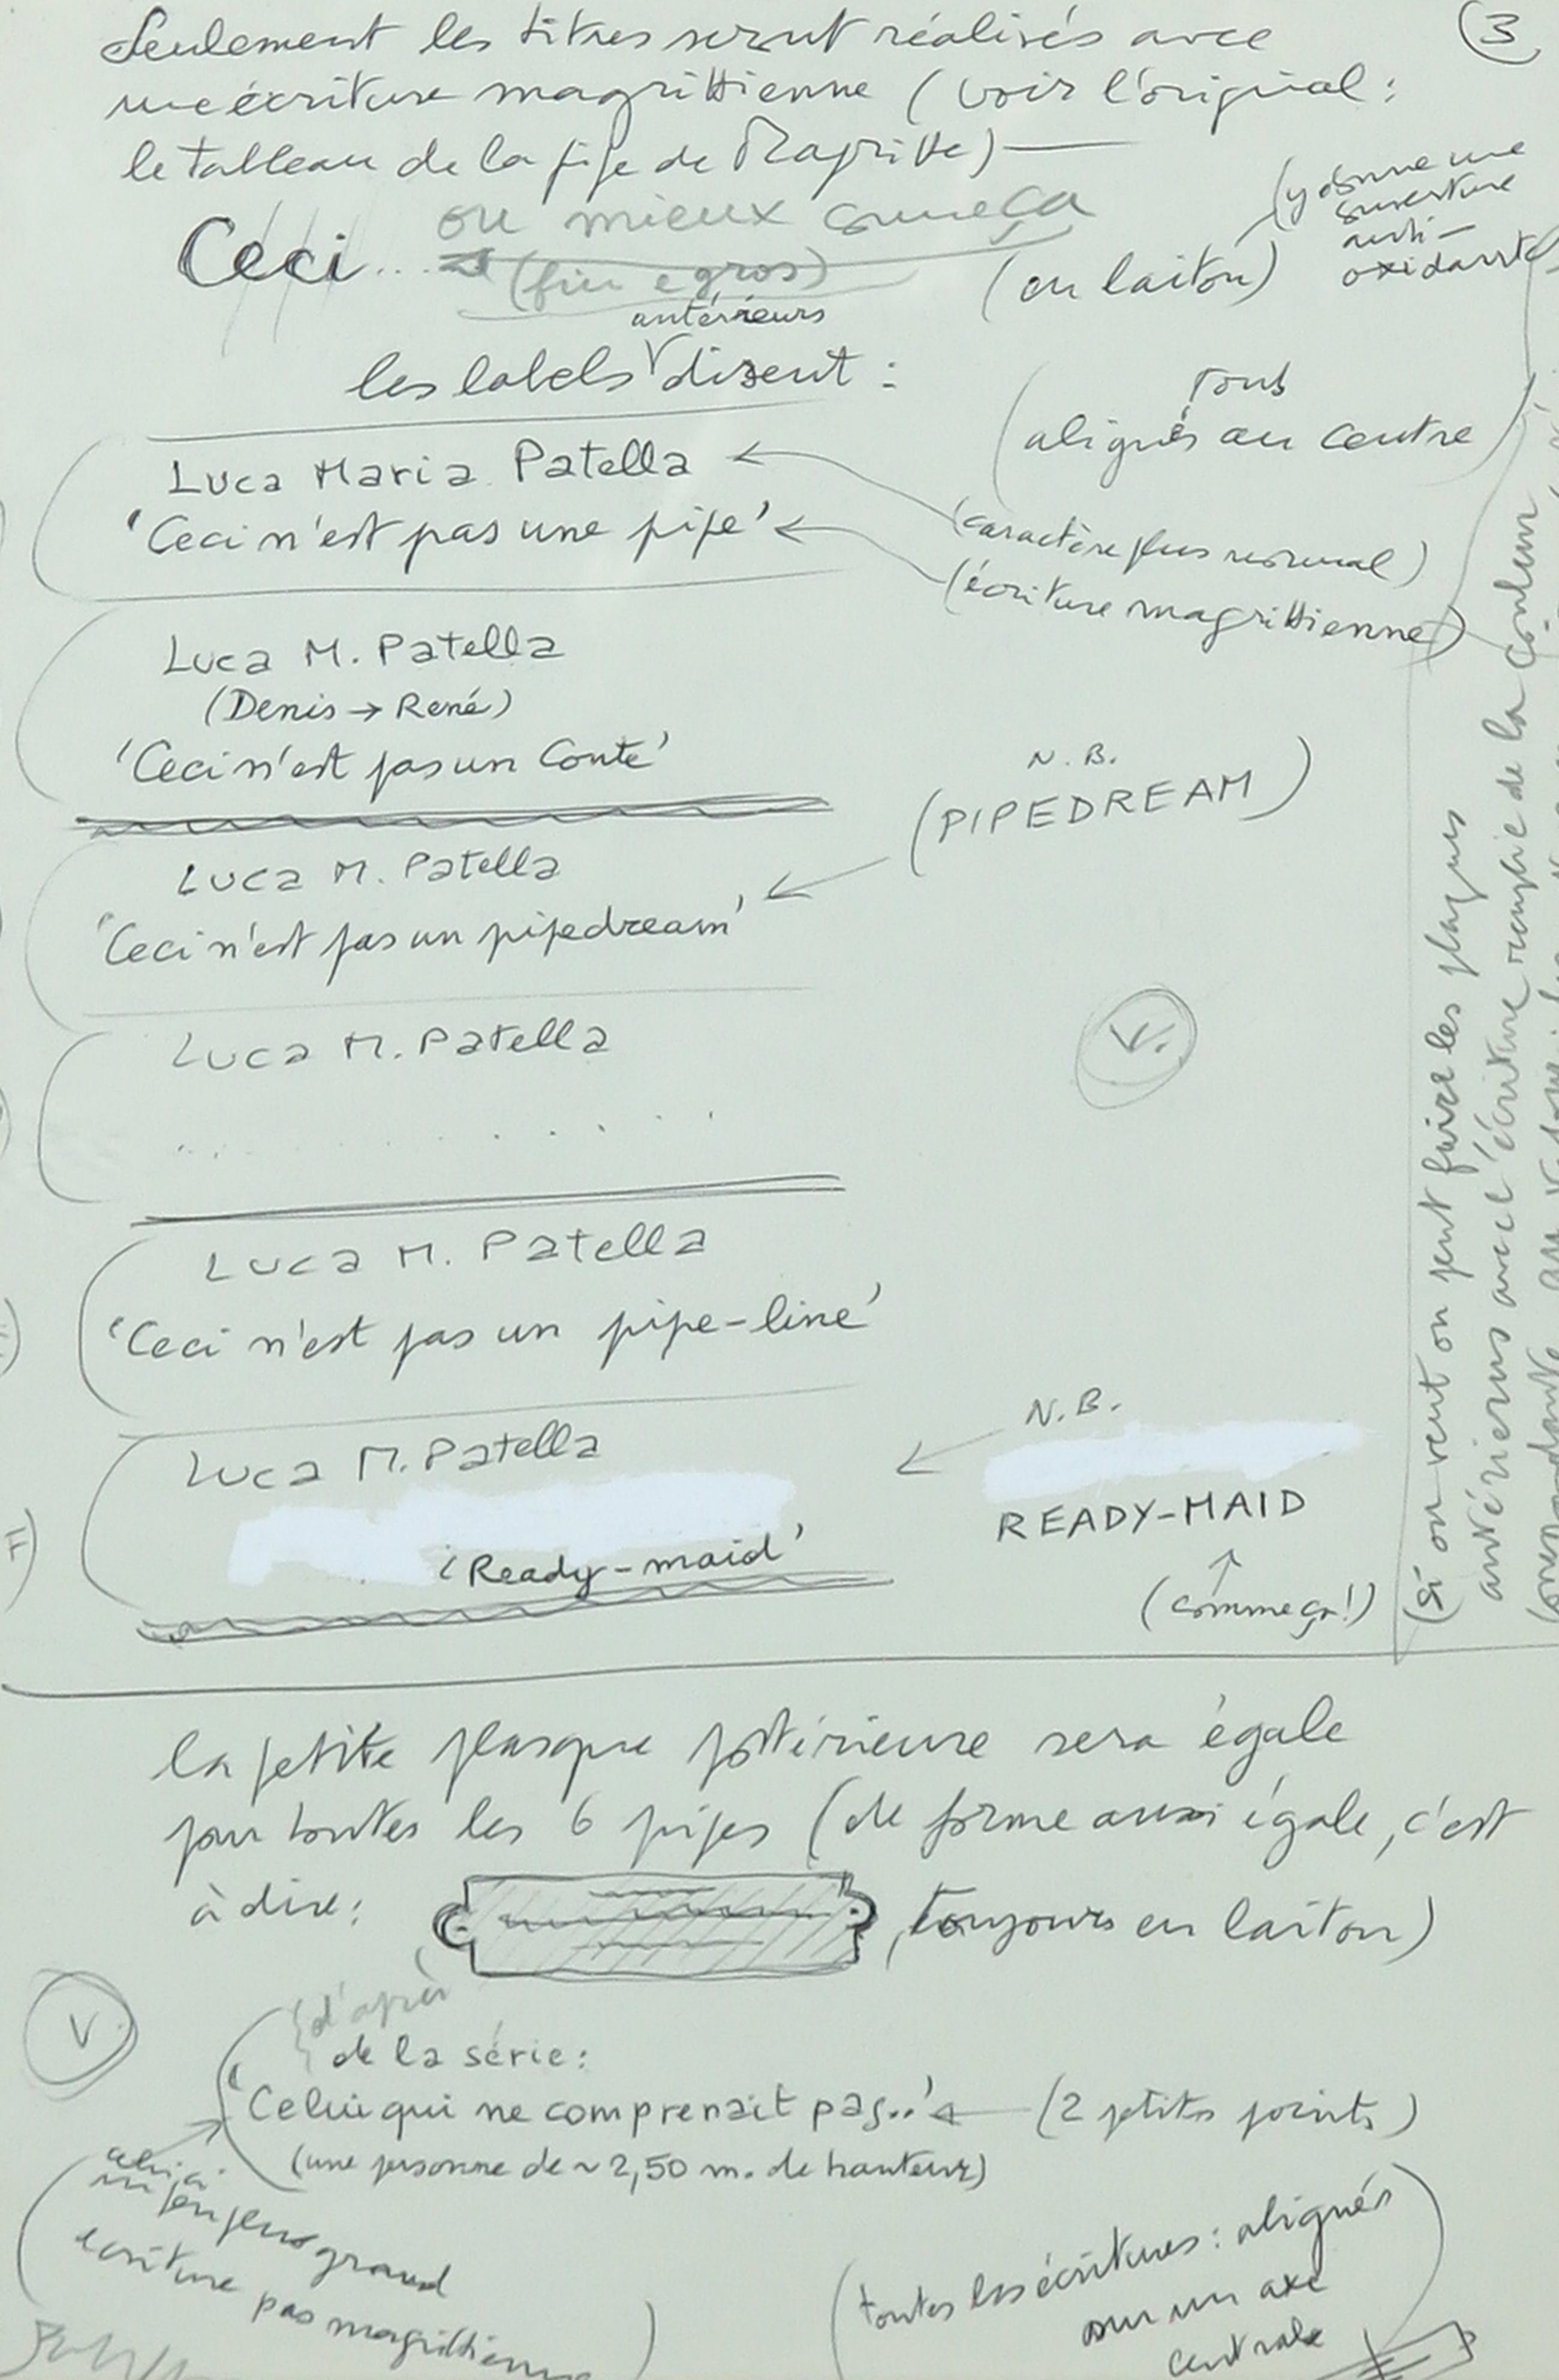 (3)
Seulement les titres seront réalisés avec
une écriture magrittienne (voir l'original:
le tableau de la pipe de Magritte) —
Ceci... ou mieux comme ça
(fin e gros)
(en laiton)
(y donne une
ouverture
anti-
oxidante
antérieurs
les labels disent :
tous
(alignés au centre)
Luca Maria Patella
'Ceci n'est pas une pipe'
(caractère plus normal)
(écriture magrittienne)
Luca M. Patella
(Denis → René)
'Ceci n'est pas un Conte'
N.B.
(PIPEDREAM)
Luca M. Patella
'Ceci n'est pas un pipedream'
V.
Luca M. Patella
. . . . . . . .
Luca M. Patella
'Ceci n'est pas un pipe-line'
N.B.
Luca M. Patella
READY-MAID
'Ready-maid'
(comme ça!)
F)
(Si on veut on peut faire les plaques
antérieures avec l'écriture remplie de la couleur
la petite plaque postérieure sera égale
pour toutes les 6 pipes (de forme aussi égale, c'est
à dire: , toujours en laiton)
V.
d'après
de la série:
'Celui qui ne comprenait pas..' ← (2 petits points)
(une personne de ~ 2,50 m. de hauteur)
celui-ci
un peu plus grand
écriture pas magrittienne
(toutes les écritures: alignés
sur un axe
centrale